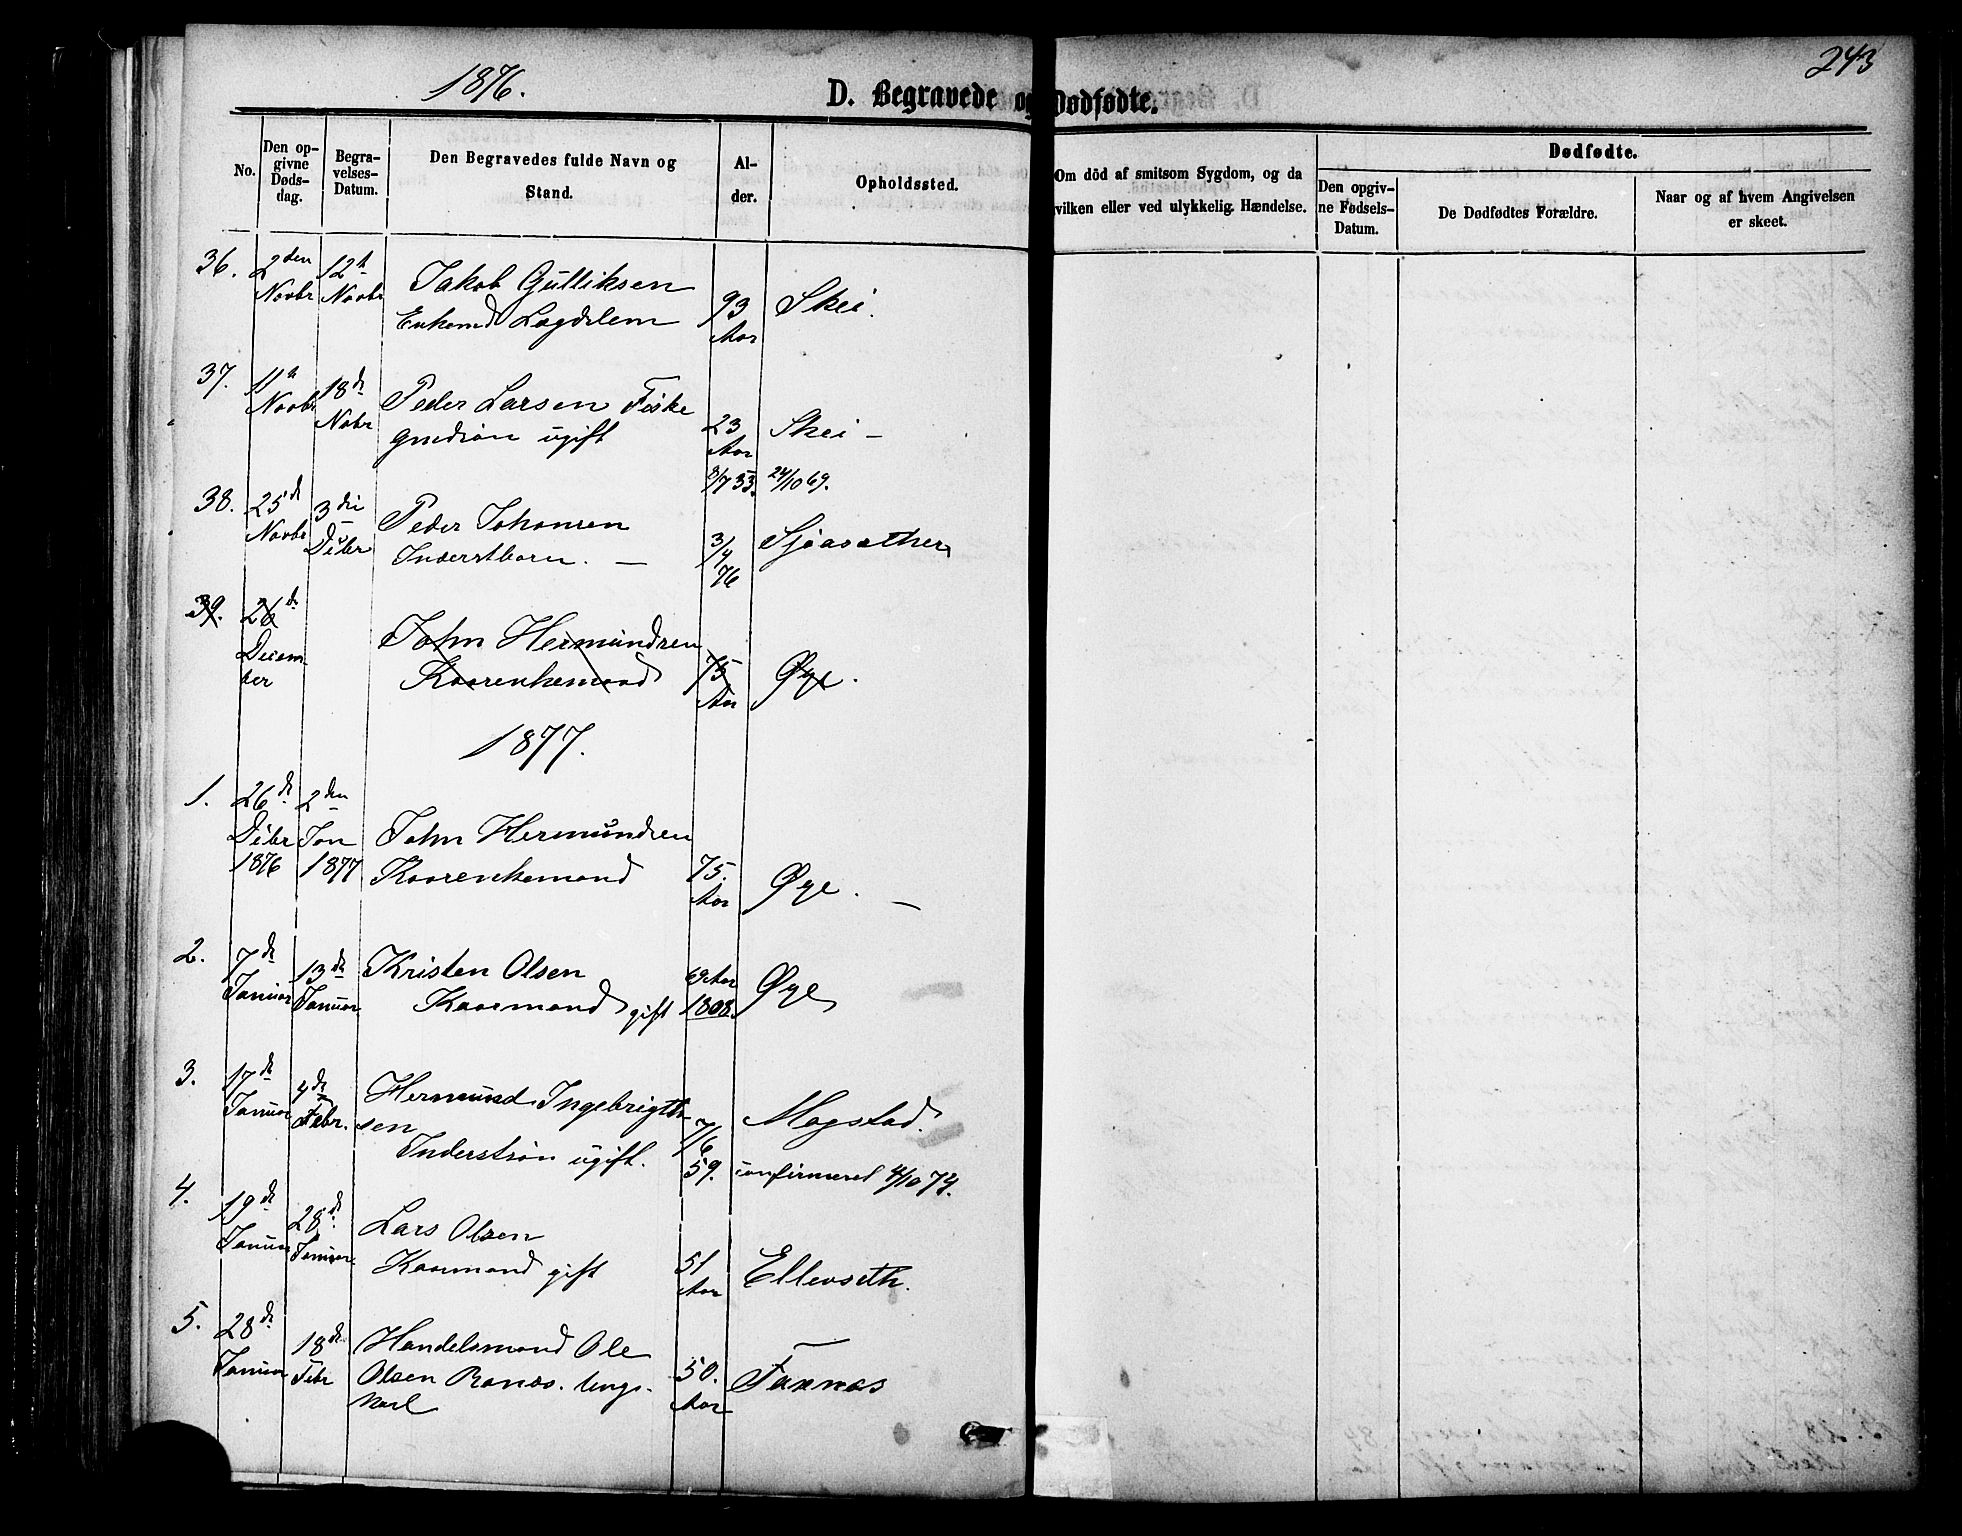 1876.
243
D. Begravede og Dødfødte.
No.
Den opgivne Dødsdag.
Begravelses-Datum.
Den Begravedes fulde Navn og Stand.
Alder.
Opholdssted.
Om död af smitsom Sygdom, og da
vilken eller ved ulykkelig. Hændelse.
Dødfødte.
Den opgivne Fødsels-Datum.
De Dødfødtes Forældre.
Naar og af hvem Angivelsen er skeet.
36. 2den Novbr 12te Novbr Jakob Gulliksen
Enkemd Lægdslem 93 Aar Skei.
37. 11te Novbr 18de Novbr Peder Larsen Fiske
ugift 23 Aar Skei —
8/7 53. 24/10 69.
38. 25de Novbr 3die Dcbr Peder Johansen
Inderstbarn. — 3/4 76 Sjøasæther
39. 26de December John Hermundsen
Kaarenkemand 75 Aar Øye.
1877.
1. 26de Dcbr 1876 2den Jan 1877 John Hermundsen
Kaarenkemand 75. Aar Øye. —
2. 7de Januar 13de Januar Kristen Olsen
Kaarmand gift 69 Aar 1808. Øye
3. 17de Januar 4de Febr. Hermund Ingebrigt-
sen
Inderstsøn ugift. 7/6 59. Mogstad.
confirmeret 4/10 74.
4. 19de Januar 28de Januar Lars Olsen
Kaarmand gift 51 Aar Ellevseth.
5. 28de Januar 18de Febr Handelsmand Ole
Olsen Ranæs. Ungkarl 50. Aar Fannæs